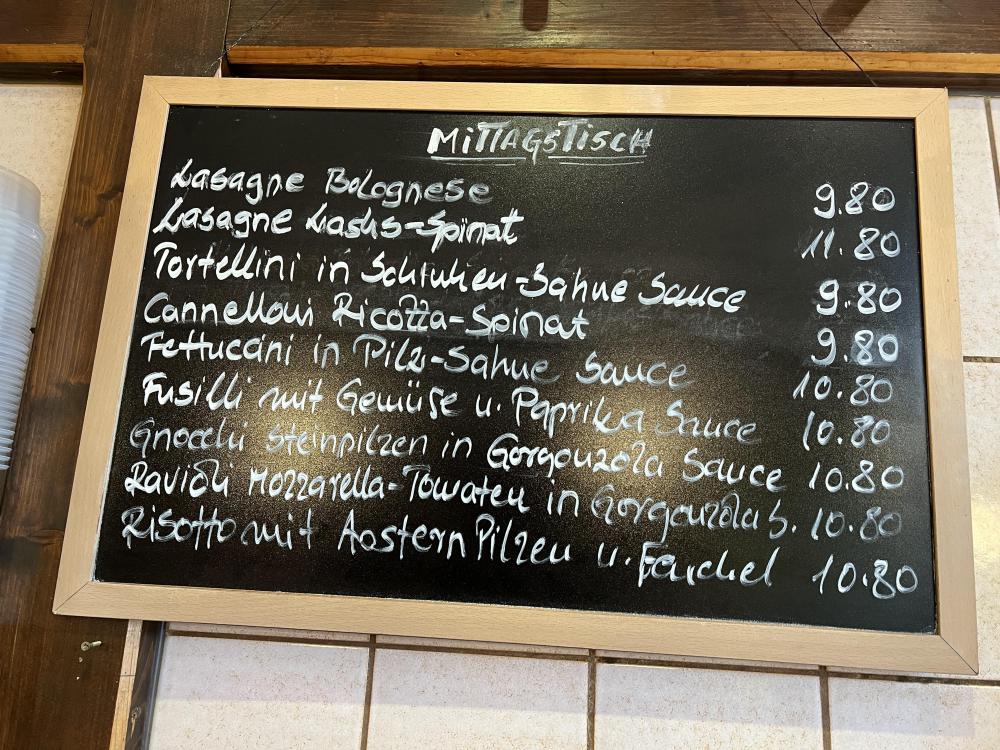 MITTAGSTISCH
Lasagne Bolognese 9.80
Lasagne Lachs-Spinat 11.80
Tortellini in Schinken-Sahne Sauce 9.80
Cannelloni Ricotta-Spinat 9.80
Fettuccini in Pilz-Sahne Sauce 10.80
Fusilli mit Gemüse u. Paprika Sauce 10.80
Gnocchi Steinpilzen in Gorgonzola Sauce 10.80
Ravioli Mozzarella-Tomaten in Gorgonzola S. 10.80
Risotto mit Aostern Pilzen u. Fenchel 10.80